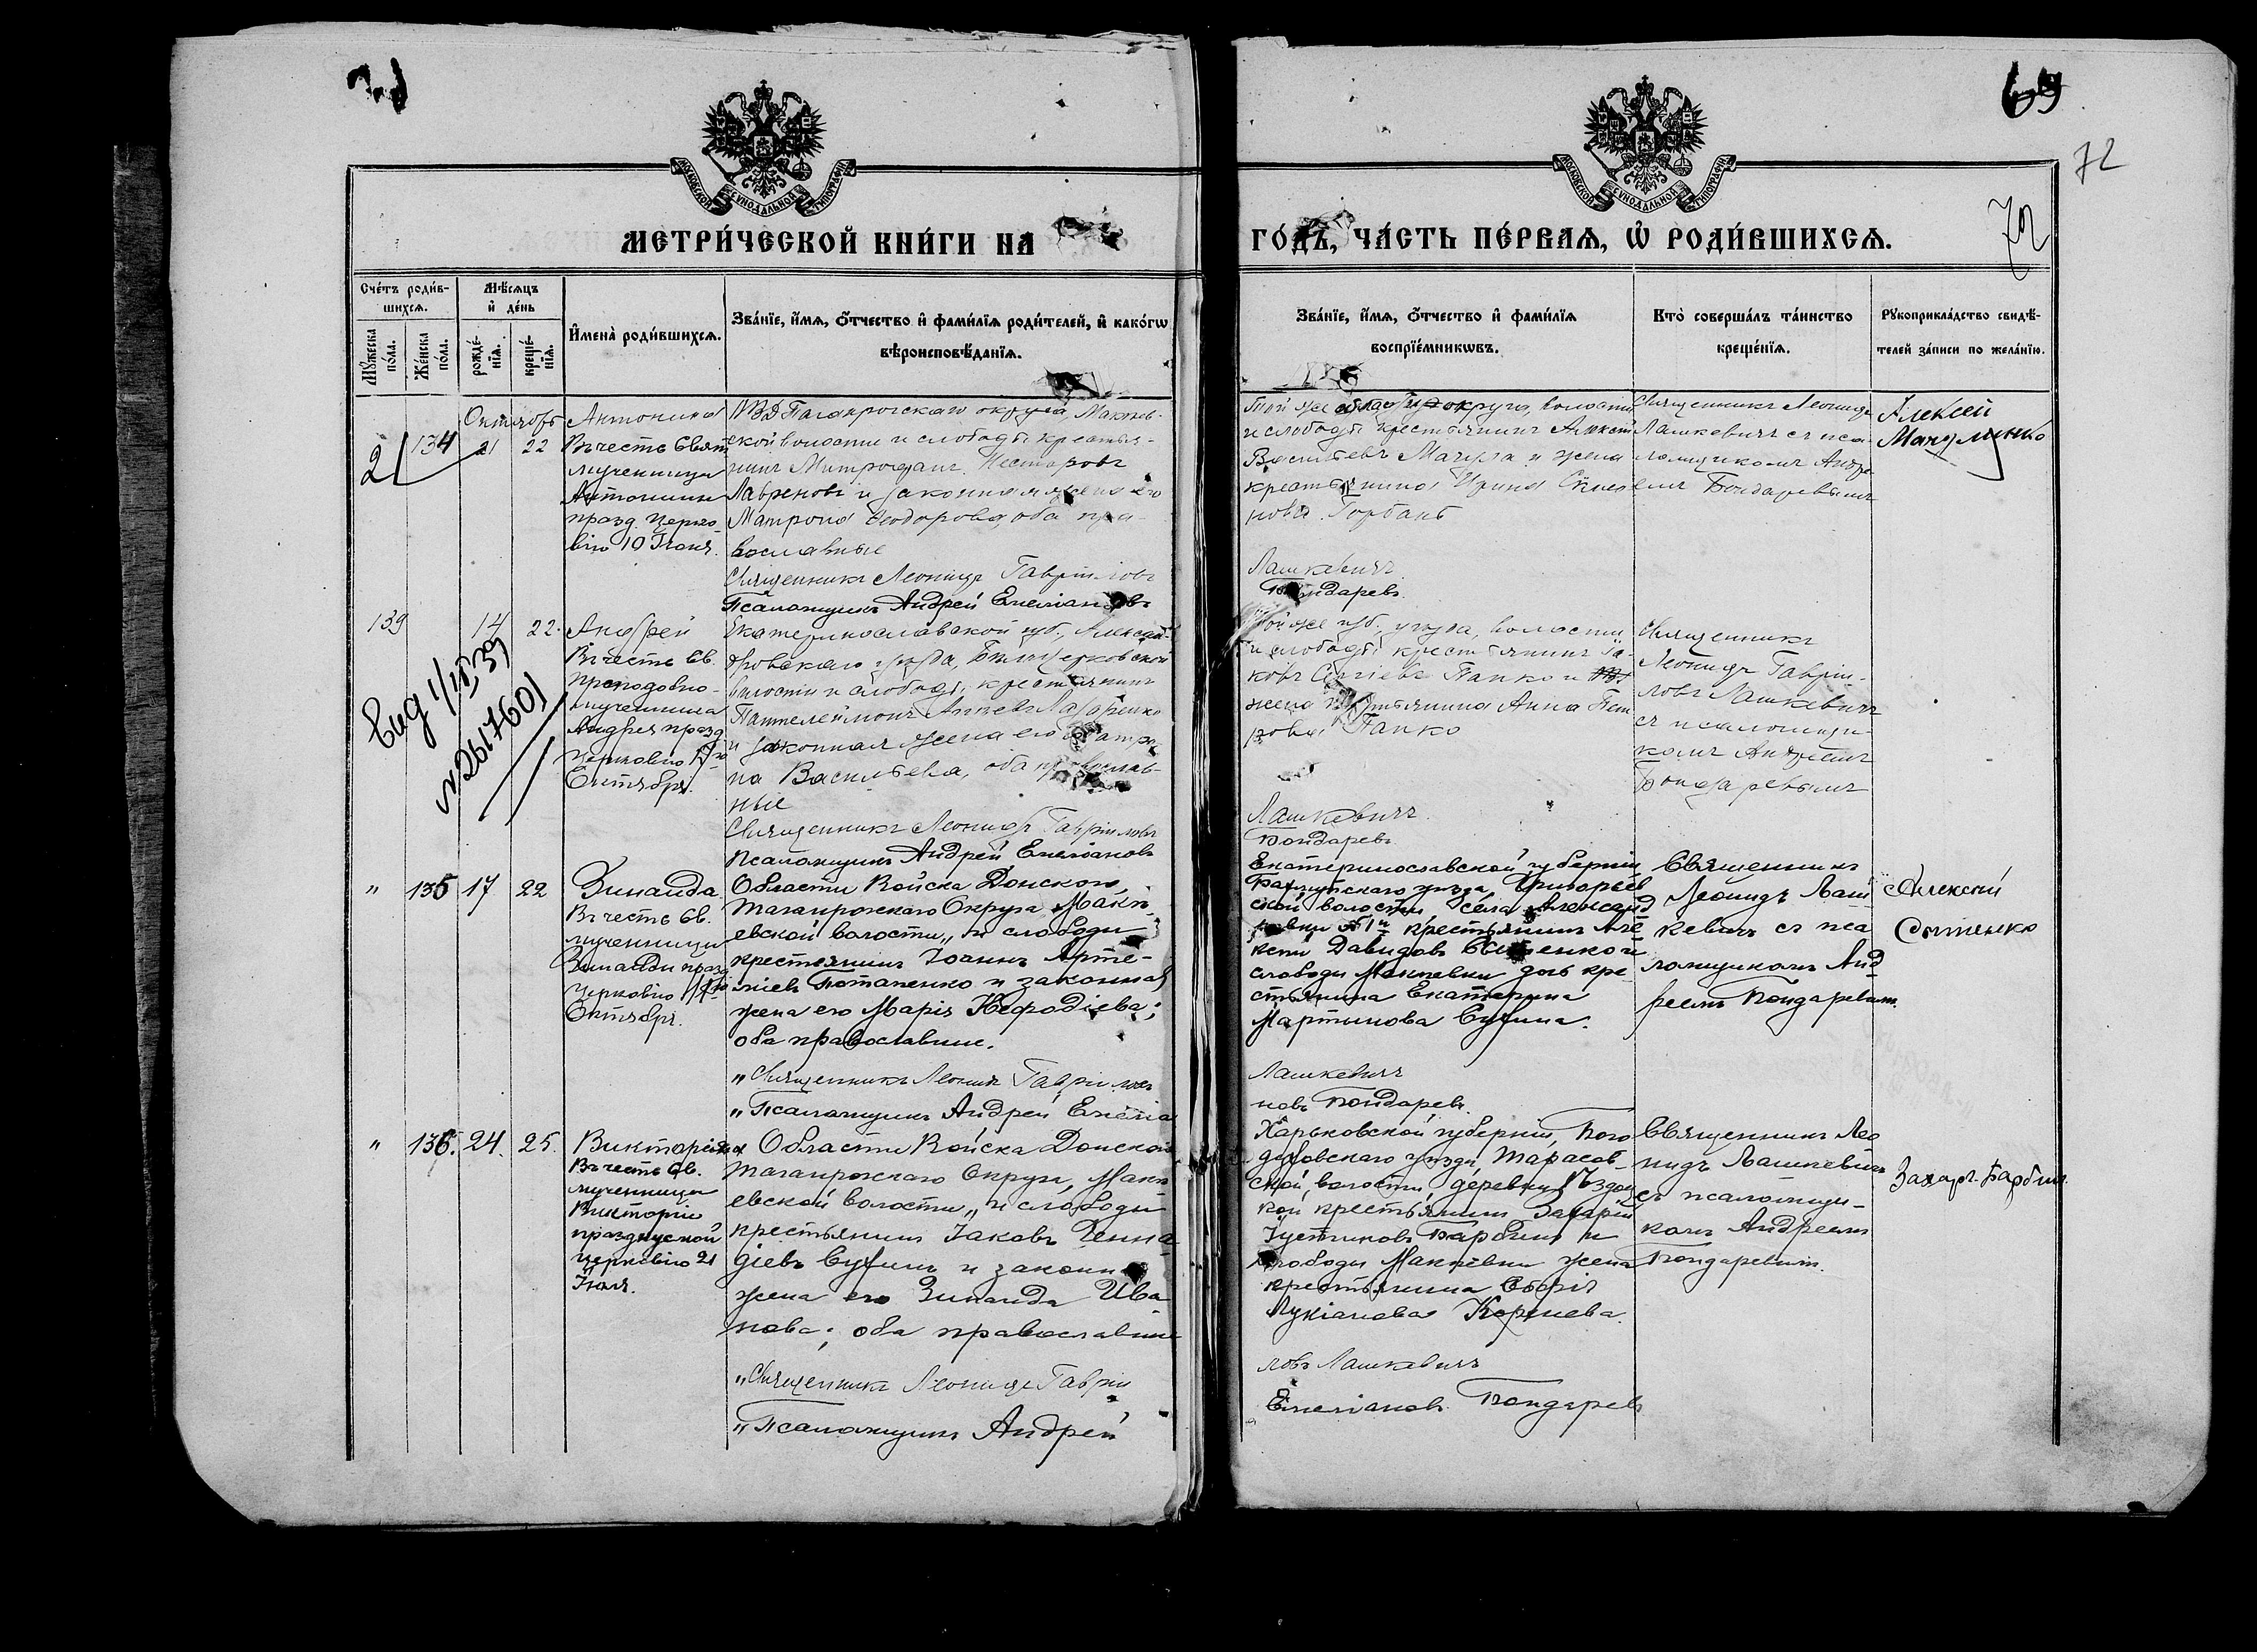 69
72
72
МОСКОВСКОЙ СѴНОДАЛЬНОЙ ТИПОГРАФІИ
МОСКОВСКОЙ СѴНОДАЛЬНОЙ ТИПОГРАФІИ
МЕТРИ́ЧЕСКОЙ КНИ́ГИ НА
ГО́ДЪ, ЧА́СТЬ ПЕ́РВАЯ, Ѡ РОДИ́ВШИХСЯ.
Сче́тъ роди́в-
шихся.
Мѣ́сяцъ
и҆ де́нь
Мꙋ́жеска по́ла.
Же́нска по́ла.
рожде́-
нїя.
креще́-
нїя.
И҆мена̀ роди́вшихся.
Зва́нїе, и҆́мя, ѻ҆́тчество и҆ фами́лїя роди́телей, и҆ како́гѡ
вѣроисповѣ́данїя.
Зва́нїе, и҆́мя, ѻ҆́тчество и҆ фами́лїя
воспрїе́мникѡвъ.
Кто̀ соверша́лъ та́инство
креще́нїя.
Рꙋкоприкла́дство свидѣ́-
телей за́писи по жела́нїю.
Октябрь
134
21
22
Антонина
Въ честь Свят
мученицы
Антонины
празд. Церко-
вію 10 Іюня.
Таганрогскаго округа, Макеев-
ской волости и слободы крестья-
нинъ Митрофанъ Несторовъ
и законная жена его
Матрона Ѳеодорова, оба пра-
вославные
Священникъ Леонидъ Гавріиловъ
Псаломщикъ Андрей Емеліановъ
округа, волости
и слободы крестьянинъ Алексѣй
Васильевъ и жена
крестьянина Ирина
нова Горбань
Лашкевичъ
Бондаревъ
Священникъ Леонидъ
Лашкевичъ съ пса-
ломщикомъ Андре-
емъ Бондаревымъ
Алексей
139
14
22.
Вид
№ 2617601
Андрей
Въ честь Св.
преподобно-
мученика
Андрея празд
Церковію 17го
Октября.
Екатеринославской губ., Алексан-
дровскаго уѣзда,
волости и слободы, крестьянинъ
Пантелеймонъ
и законная жена его Матро-
на Васильева, оба православ-
ные
Священникъ Леонидъ Гавріиловъ
Псаломщикъ Андрей Емеліановъ
Той же губ., уѣзда, волости
и слободы крестьянинъ Іа-
ковъ Сергіевъ Папко и
жена крестьянина Анна Пет
рова Папко
Лашкевичъ
Бондаревъ
Священникъ
Леонидъ Гавріи-
ловъ Лашкевичъ
съ псаломщи-
комъ Андреемъ
Бондаревымъ
"
135
17
22
Зинаида
Въ честь Св.
мученицы
Зинаиды празд
Церковію 11го
Октября.
Области Войска Донского,
Таганрожскаго Округа Маке-
евской волости, и слободы
крестьянинъ Іоаннъ Арте-
міевъ Потапенко и законная
жена его Марія Меѳодіева;
оба православные.
"Священникъ Леонидъ Гавріиловъ
"Псаломщикъ Андрей Емеліа
Екатеринославской губерніи,
Бахмутскаго уѣзда, Григорьев
ской волости, села Александ
ровки № 1й крестьянинъ Але
ксѣй Давидовъ и
слободы Макеевки дочь кре-
стьянина Екатерина
Мартинова Сухина.
Лашкевичъ
новъ Бондаревъ.
Священникъ
Леонидъ Лаш
кевичъ съ пса
ломщикомъ Анд
реемъ Бондаревым.
Алексѣй
"
136.
24.
25.
Викторія
Въ честь Св.
мученицы
Викторіи
празднуемой
церковію 21
Области Войска Донского
Таганрожскаго Округа, Маке
евской волости, и слободы
крестьянинъ Іаковъ Генна
діевъ Сухинъ и законная
жена его Зинаида Ива
нова; оба православные
"Священникъ Леонидъ Гавріи
"Псаломщикъ Андрей
Харьковской губерніи, Бого
духовскаго уѣзда, Тарасов-
ской, волости, деревни
кой крестьянинъ Захарій
Іустиновъ и
слободы Макеевки жена
крестьянина Софія
Лукіанова Корнева.
ловъ Лашкевичъ
Емеліановъ Бондаревъ
Священникъ Лео
нидъ Лашкевичъ
съ псаломщи-
комъ Андреемъ
Бондаревым.
Захаръ